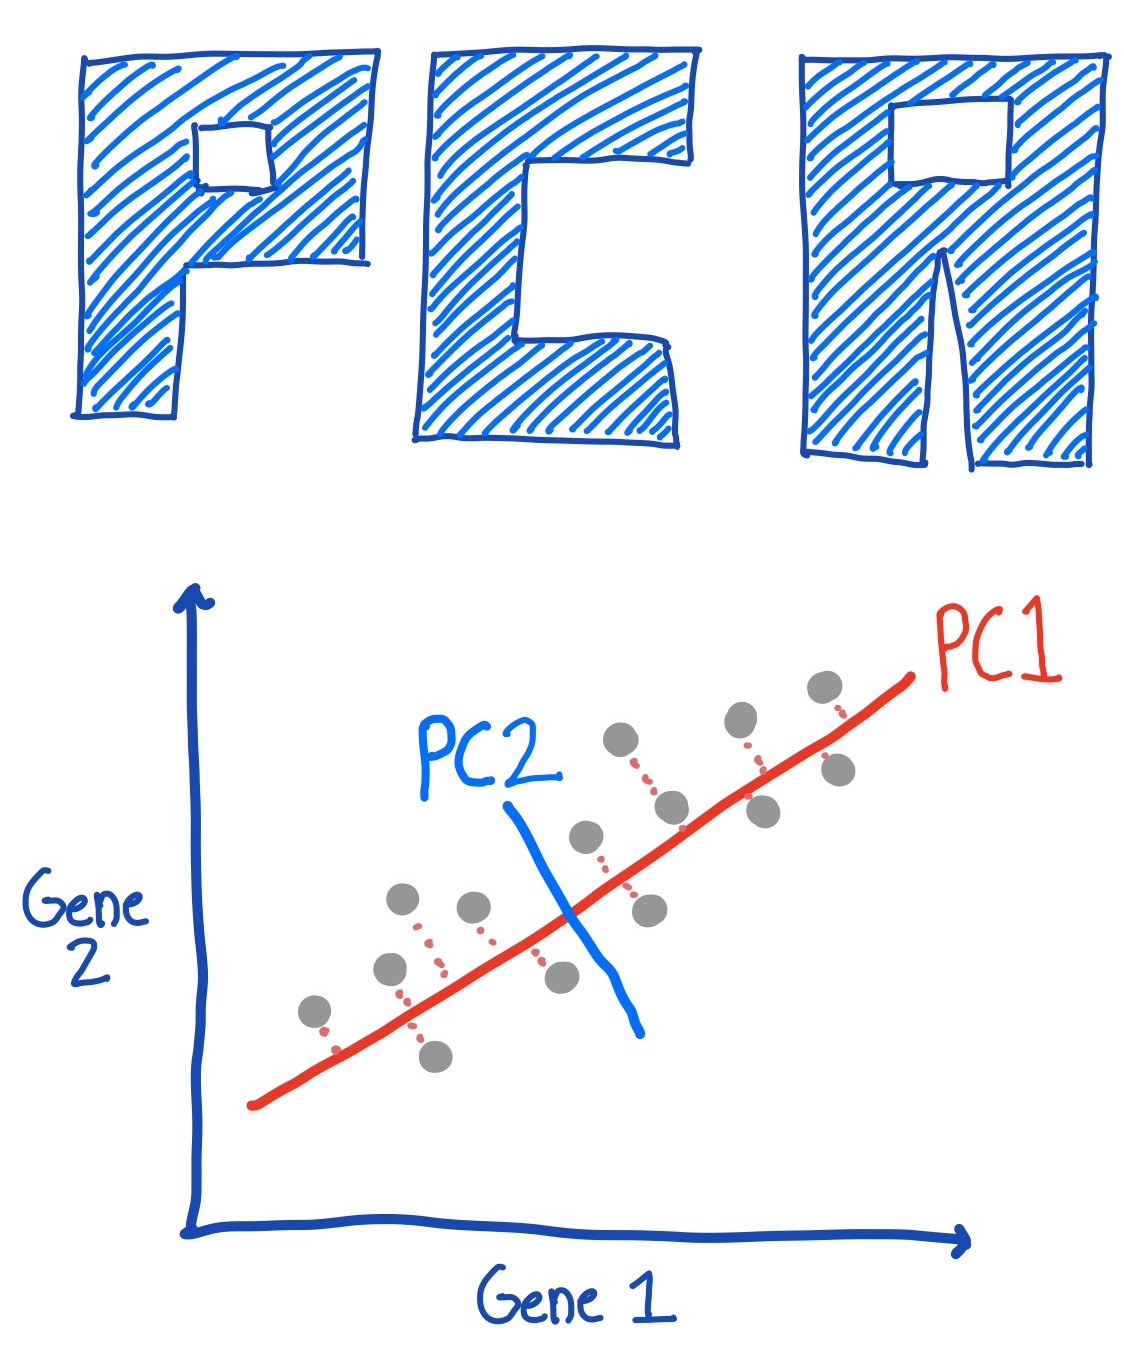 PCA
PC1
PC2
Gene
2
Gene 1